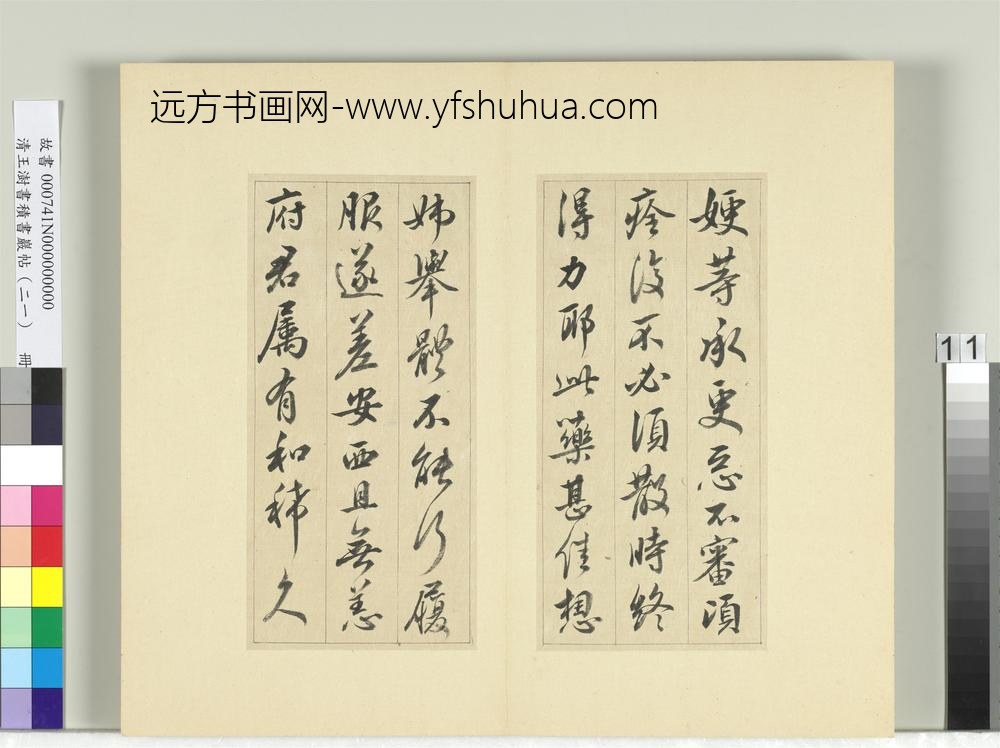 远方书画网-www.yfshuhua.com
故書 000741N000000000
清王澍書積書巖帖(二一) 冊
11
嫂等承更忌不審須
痊復不必須散時終
得力耶此藥甚佳想
姊舉體不能行履
服遂差安西且無恙
府君属有和稀久